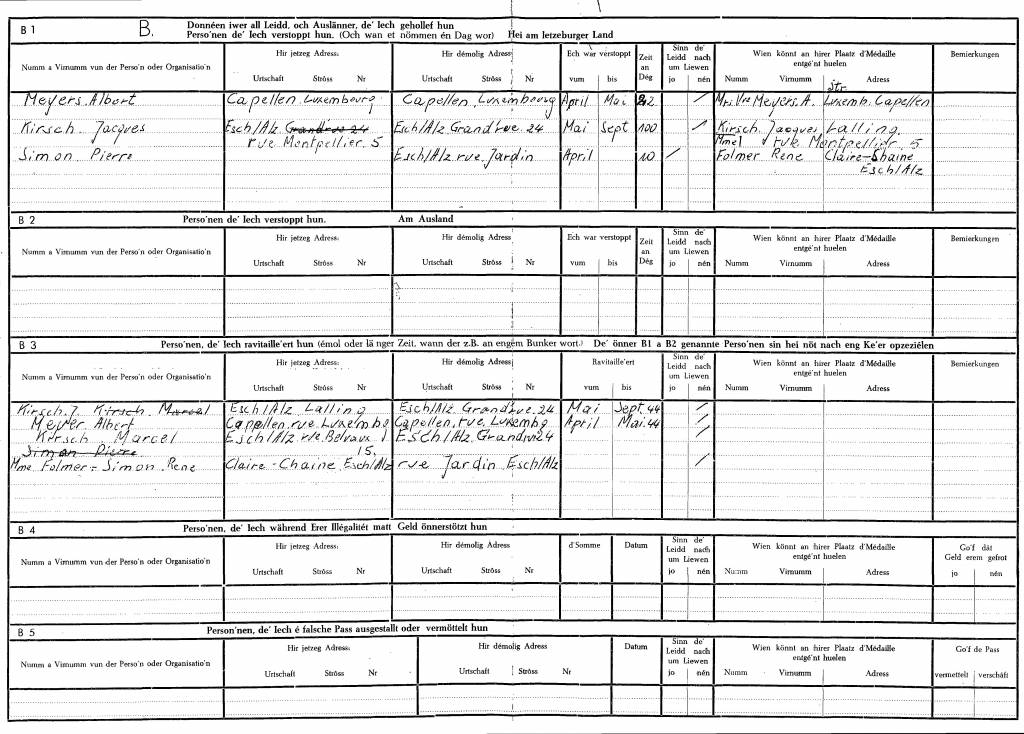 B 1 B. Donnéen iwer all Leidd, och Auslänner, de' Iech gehollef hun
Perso'nen de' Iech verstoppt hun. (Och wan et nömmen én Dag wor) Hei am letzeburger Land
Numm a Virnumm vun der Perso'n oder Organisatio'n Hir jetzeg Adress: Hir démolig Adress: Ech war verstoppt Zeit an Dég Sinn de' Leidd nach um Liewen Wien könnt an hirer Plaatz d'Médaille entgé'nt huelen Bemierkungen
Urtschaft Ströss Nr Urtschaft Ströss Nr vum bis jo nén Numm Virnumm Adress
Str
Meyers. Albert Capellen. Luxembourg Capellen. Luxembourg April Mai 242 / Mrs Vve Meyers. A. Luxemb. Capellen
Kirsch. Jacques Esch/Alz Grandrue 24 Esch/Alz Grand'rue. 24 Mai Sept 100 / Kirsch. Jacques Lalling.
rue Montpellier. 5 Mmel rue Montpellier. 5
Simon Pierre Esch/Alz rue. Jardin April 10 / Folmer Rene Claire-Shaine
Esch/Alz
B 2 Perso'nen de' Iech verstoppt hun. Am Ausland
Numm a Virnumm vun der Perso'n oder Organisatio'n Hir jetzeg Adress: Hir démolig Adress: Ech war verstoppt Zeit an Dég Sinn de' Leidd nach um Liewen Wien könnt an hirer Plaatz d'Médaille entgé'nt huelen Bemierkungen
Urtschaft Ströss Nr Urtschaft Ströss Nr vum bis jo nén Numm Virnumm Adress
B 3 Perso'nen, de' Iech ravitaille'ert hun (émol oder lä nger Zeit, wann der z.B. an engem Bunker wort.) De' önner B1 a B2 genannte Perso'nen sin hei nöt nach eng Ke'er opzeziélen
Numm a Virnumm vun der Perso'n oder Organisatio'n Hir jetzeg Adress: Hir démolig Adress: Ravitaille'ert Sinn de' Leidd nach um Liewen Wien könnt an hirer Plaatz d'Médaille entgé'nt huelen Bemierkungen
Urtschaft Ströss Nr Urtschaft Ströss Nr vum bis jo nén Numm Virnumm Adress
Kirsch. J. Kirsch. Marcel Esch/Alz Lalling Esch/Alz Grand'rue. 24 Mai Sept. 44 /
Meyer Albert Capellen. rue Luxembg Capellen. rue. Luxembg April Mai. 44 /
Kirsch. Marcel Esch/Alz rue Belvaux Esch/Alz. Grandrue 24 /
Simon Pierre 15.
Mme Folmer-Simon. Rene Claire-Chaine Esch/Alz rue Jardin Esch/Alz /
B 4 Perso'nen, de' Iech während Erer Illégalitét matt Geld önnerstötzt hun
Numm a Virnumm vun der Perso'n oder Organisatio'n Hir jetzeg Adress: Hir démolig Adress d'Somme Datum Sinn de' Leidd nach um Liewen Wien könnt an hirer Plaatz d'Médaille entgé'nt huelen Go'f dât Geld erem gefrot
Urtschaft Ströss Nr Urtschaft Ströss Nr jo nén Numm Virnumm Adress jo nén
B 5 Person'nen, de' Iech é falsche Pass ausgestallt oder vermöttelt hun
Numm a Virnumm vun der Perso'n oder Organisatio'n Hir jetzeg Adress: Hir démolig Adress Datum Sinn de' Leidd nach um Liewen Wien könnt an hirer Plaatz d'Médaille entgé'nt huelen Go'f de Pass
Urtschaft Ströss Nr Urtschaft Ströss Nr jo nén Numm Virnumm Adress vermettelt verschâft